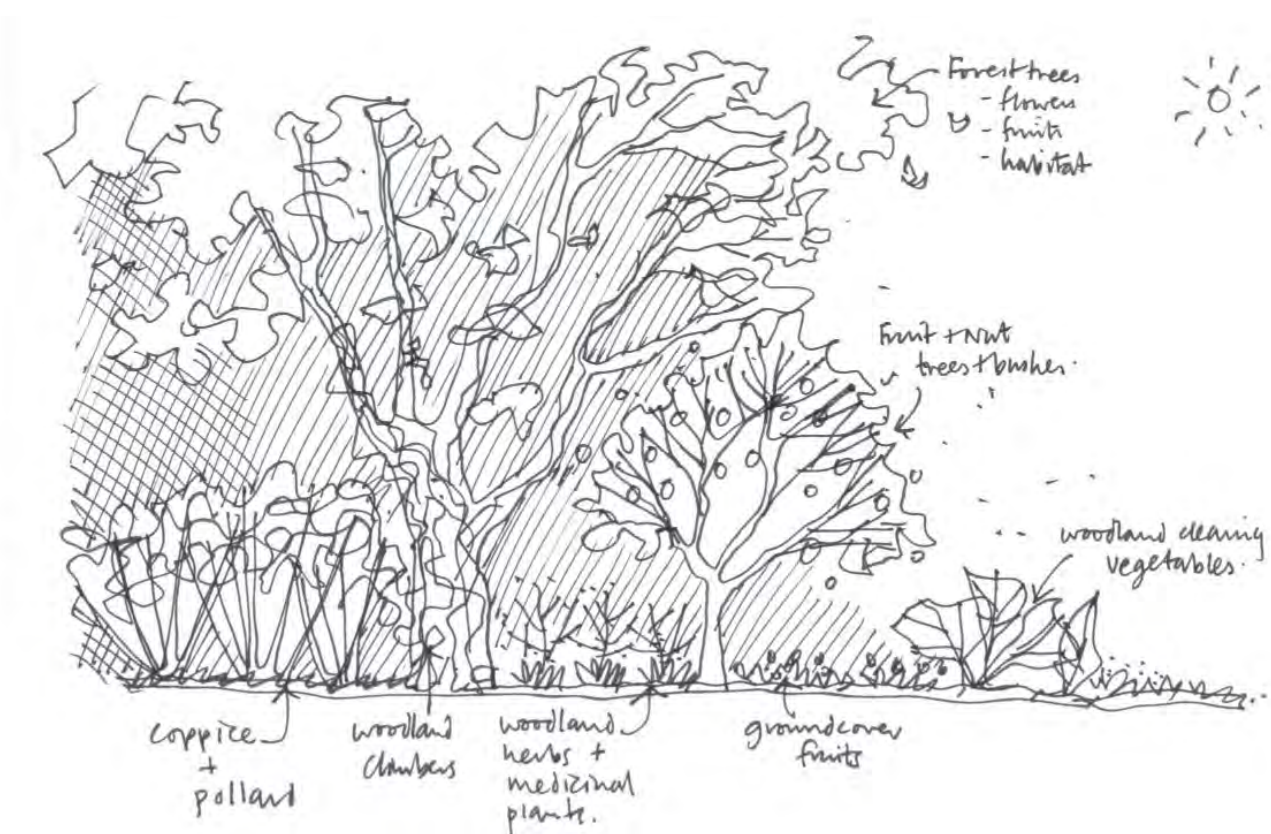 Forest trees
- flowers
- fruits
- habitat
Fruit + Nut
trees + bushes.
woodland clearing
vegetables.
coppice
+
pollard
woodland
climbers
woodland
herbs +
medicinal
plants.
groundcover
fruits